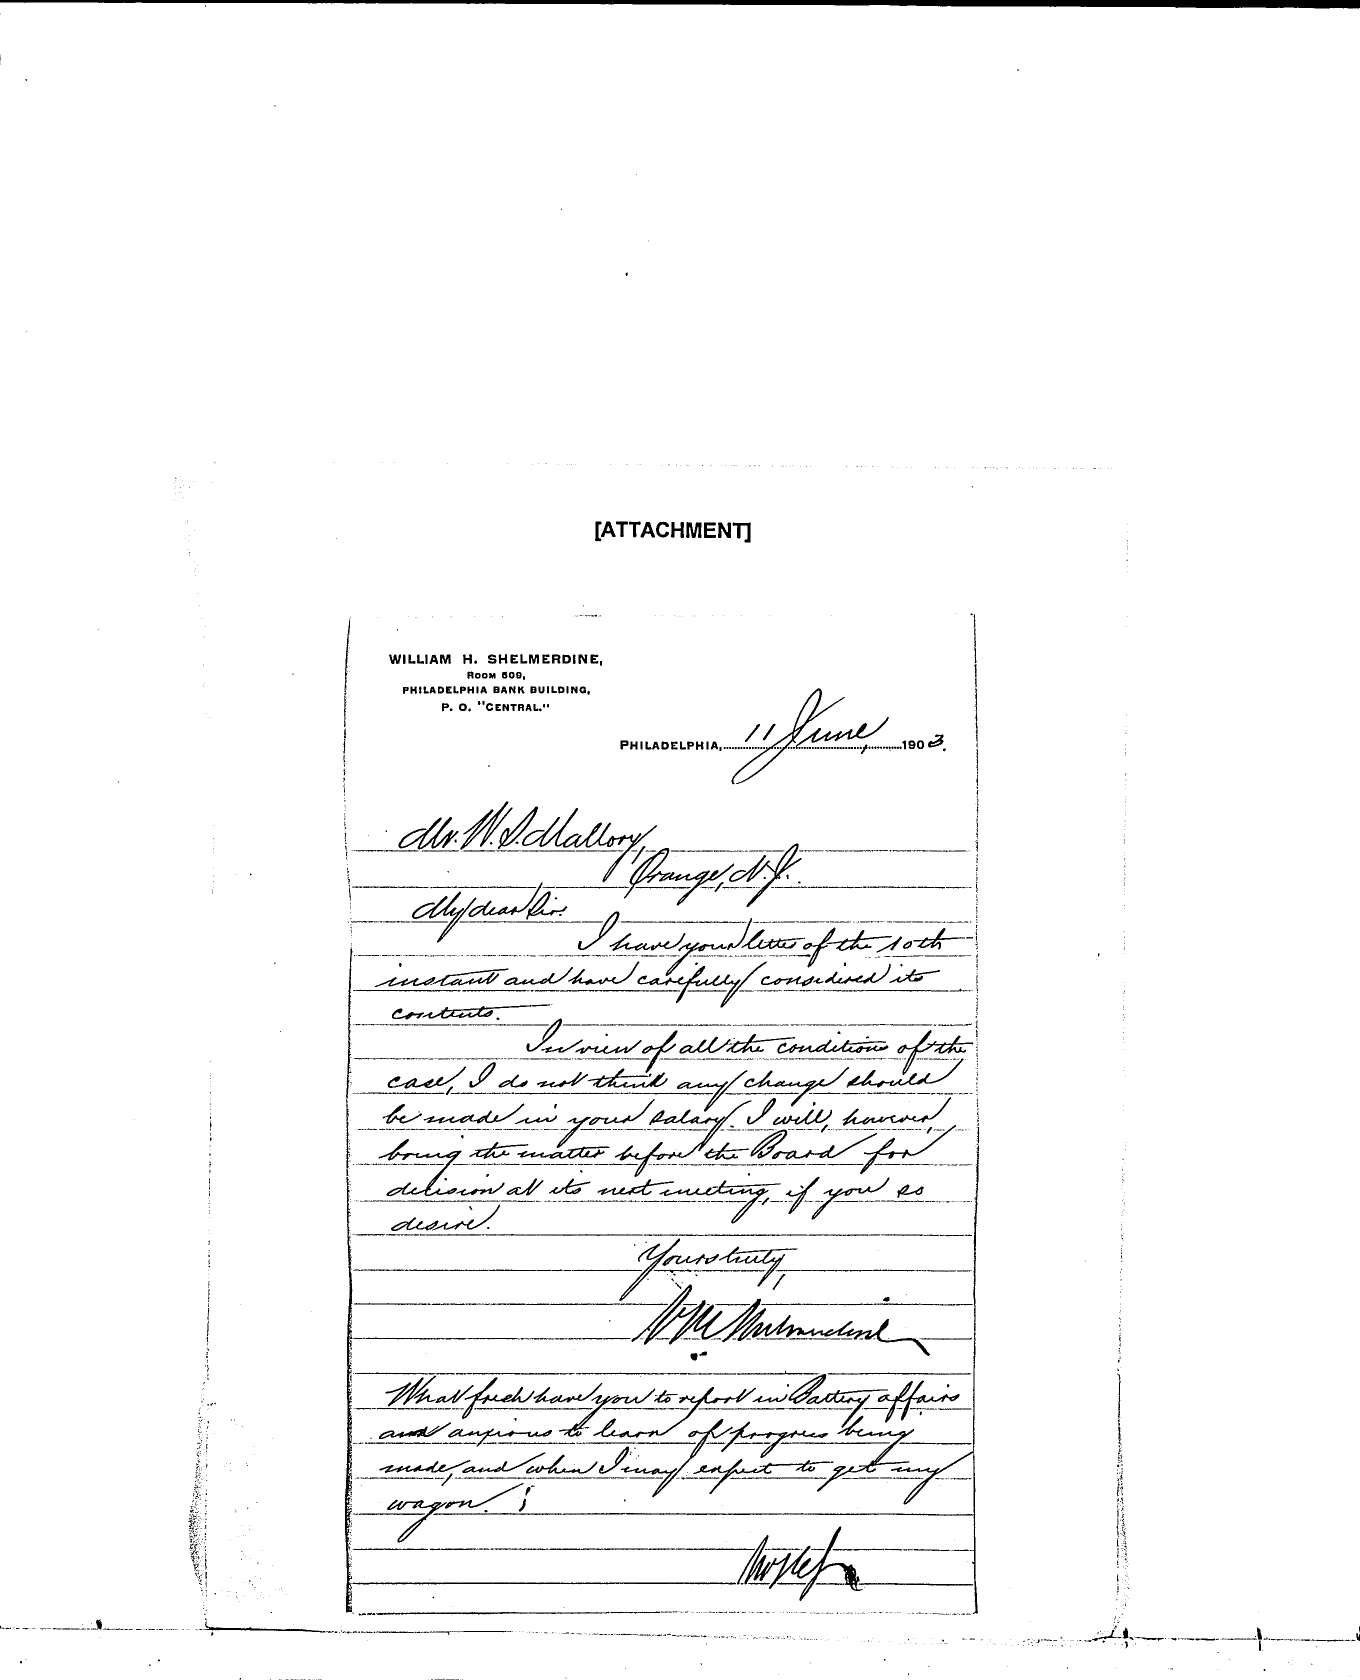 [ATTACHMENT]
WILLIAM H. SHELMERDINE,
ROOM 609,
PHILADELPHIA BANK BUILDING,
P. O. "CENTRAL."
PHILADELPHIA, 11 June, 1903.
Mr. W. S. Mallory,
Orange, N.J.
My dear Sir:
I have your letter of the 10th
instant and have carefully considered its
contents.
In view of all the conditions of the
case, I do not think any change should
be made in your salary. I will, however,
bring the matter before the Board for
decision at its next meeting, if you so
desire.
Yours truly,
W H Shelmerdine
What fresh have you to report in Battery affairs
and anxious to learn of progress being
made, and when I may expect to get my
wagon.